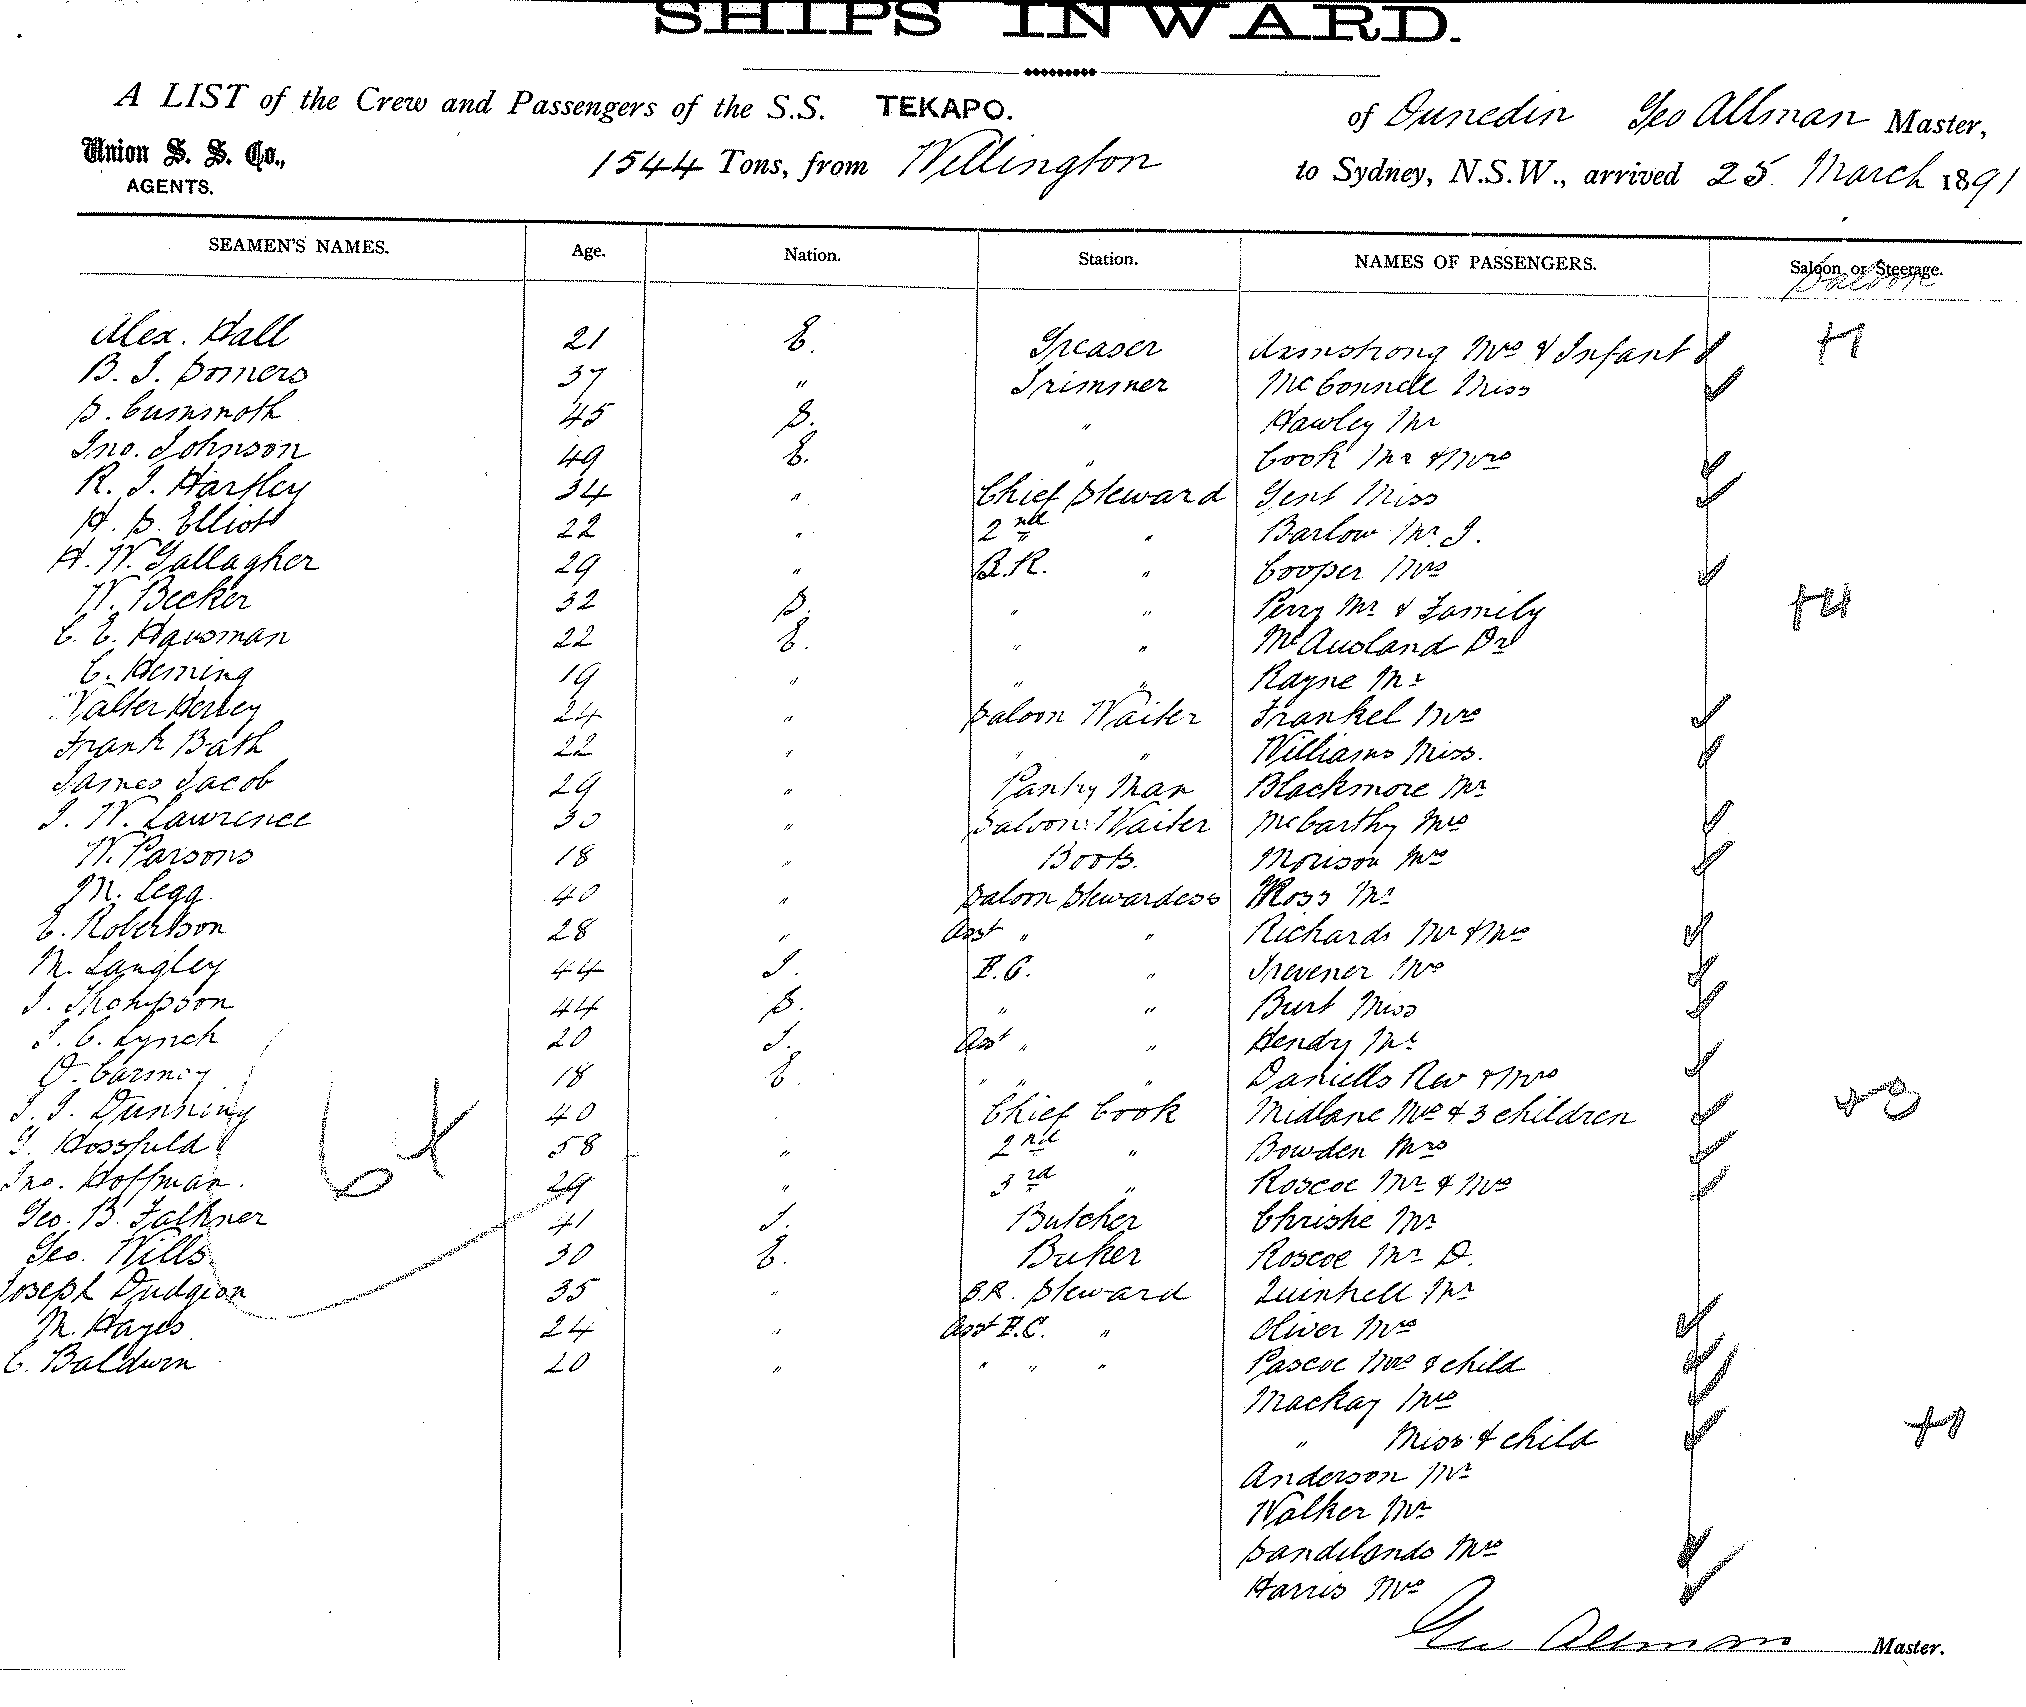 SHIPS INWARD.
A LIST of the Crew and Passengers of the S.S. TEKAPO. of Dunedin Geo Allman Master,
Union S. S. Co., AGENTS. 1544 Tons, from Wellington to Sydney, N.S.W., arrived 25 March 1891
SEAMEN'S NAMES. Age. Nation. Station. NAMES OF PASSENGERS. Saloon or Steerage.
Saloon
Alex. Hall 21 E. Greaser Armstrong Mrs & Infant +1
B. J. Somers 37 " Trimmer McConnell Miss
S. 45 S. " Hawley Mr
Jno. Johnson 49 E. " Cook Mr & Mrs
R. J. Hartley 34 " Chief Steward Gent Miss
H. S. Elliott 22 " 2nd " Barlow Mr J.
H. W. Gallagher 29 " B.R. " Cooper Mrs
W. Becker 32 S. " " Perry Mr & Family +4
C. E. Hausman 22 E. " " McAusland Dr
C. Heming 19 " " " Rayne Mr
Walter Hervey 24 " Saloon Waiter Frankel Mrs
Frank Bath 22 " " " Williams Miss.
James Jacob 29 " Pantry Man Blackmore Mr
J. W. Lawrence 30 " Saloon Waiter McCarthy Mrs
W. Parsons 18 " Boots. Morison Mrs
M. Legg 40 " Saloon Stewardess Ross Mr
E. Robertson 28 " Asst " " Richards Mr & Mrs
M. Langley 44 I. F.C. " Trevener Mrs
J. Thompson 44 S. " " Burt Miss
J. C. Lynch 20 I. Asst " " Hendry Mr
18 E. " " " Daniells Rev & Mrs
J. J. Dunning 40 Chief Cook Midlane Mrs & 3 children +3
G. Hossfuld 58 " 2nd " Bowden Mrs
Jno. Hoffman. 29 " 3rd " Roscoe Mr & Mrs
Geo. B. Falkner 41 I. Butcher Christie Mr
Geo. Wills 30 E. Baker Roscoe Mr D.
Joseph Dudgion 35 " B.R. Steward Quinnell Mr
M. Hayes 24 " Asst F.C. " Oliver Mrs
C. Baldwin 20 " " " " Pascoe Mrs & child
Mackay Mrs
" Miss & child +1
Anderson Mr
Walker Mr
Sandilands Mrs
Harris Mrs
64
Geo Allman Master.